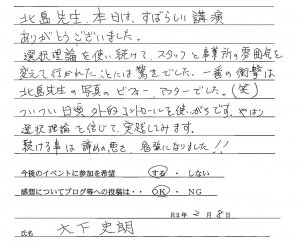 北島先生、本日は、すばらしい講演
ありがとうございました。
選択理論を使い続けて、スタッフと事業所の雰囲気を
変えて行かれたことには驚きでした。一番の衝撃は
北島先生の写真のビフォーアフターでした。(笑)
ついつい日頃外的コントロールを使いがちです。やはり
選択理論を信じて、実践してみます。
続ける事は諦めの悪さ、名言になりました!!
今後のイベントに参加を希望 する ・ しない
感想についてブログ等への投稿は・・ OK ・ NG
R2年 2月 8日
氏名 大下 史朗